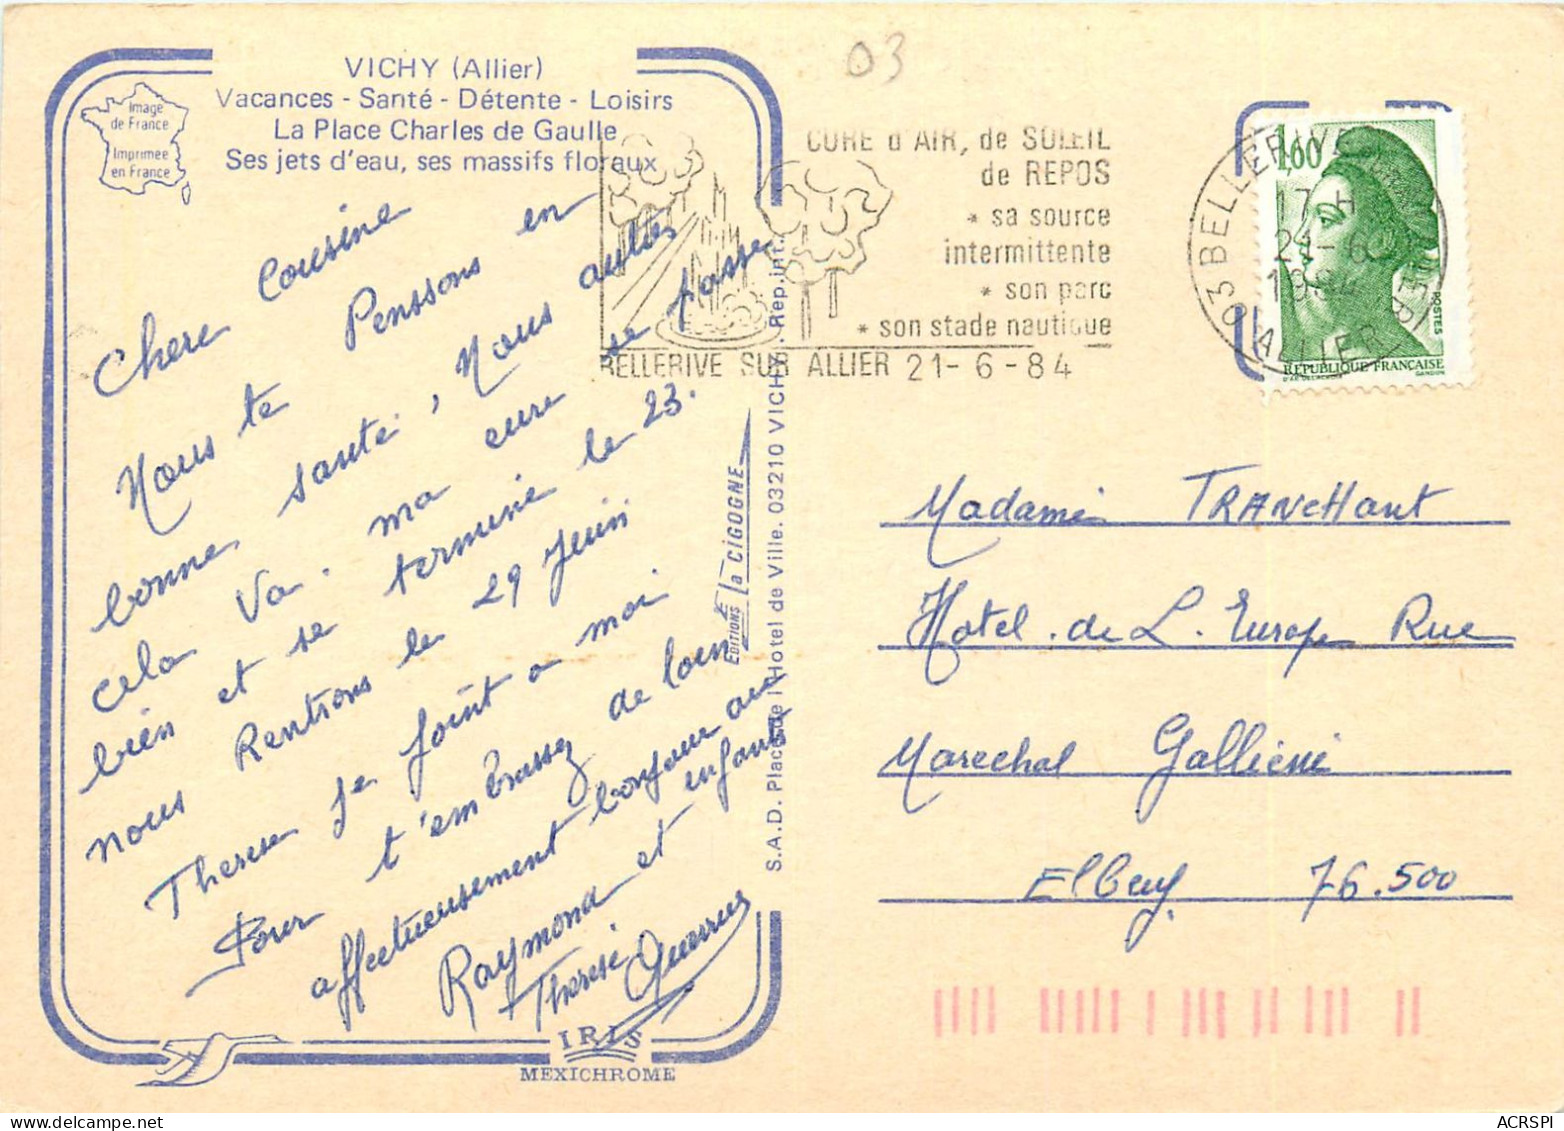 03
VICHY (Allier)
Vacances - Santé - Détente - Loisirs
La Place Charles de Gaulle
Ses jets d'eau, ses massifs floraux
Image
de France
Imprimée
en France
Chere Cousine
Nous te Penssons en
bonne santé, Nous autes
cela va. ma cure se passe
bien et se termine le 23.
nous Rentrons le 29 Juin
Therese se joint a moi
Pour t'embrassez de loin
affectueusement bonjour aux
enfants
Raymond et
Therese
CURE d'AIR, de SOLEIL
de REPOS
* sa source
intermittente
* son parc
* son stade nautique
BELLERIVE SUR ALLIER 21-6-84
03 BELLERIVE
17 H
21-6
1984
ALLIER
1,60
POSTES
RÉPUBLIQUE FRANÇAISE
GANDON
Madame TRANCHant
Hotel. de L. Europe Rue
Marechal Gallieni
Elbeuf 76.500
EDITIONS la CIGOGNE
S.A.D. Place de l'Hotel de Ville. 03210 VICHY. Rep.int.
IRIS
MEXICHROME
ACRSPI